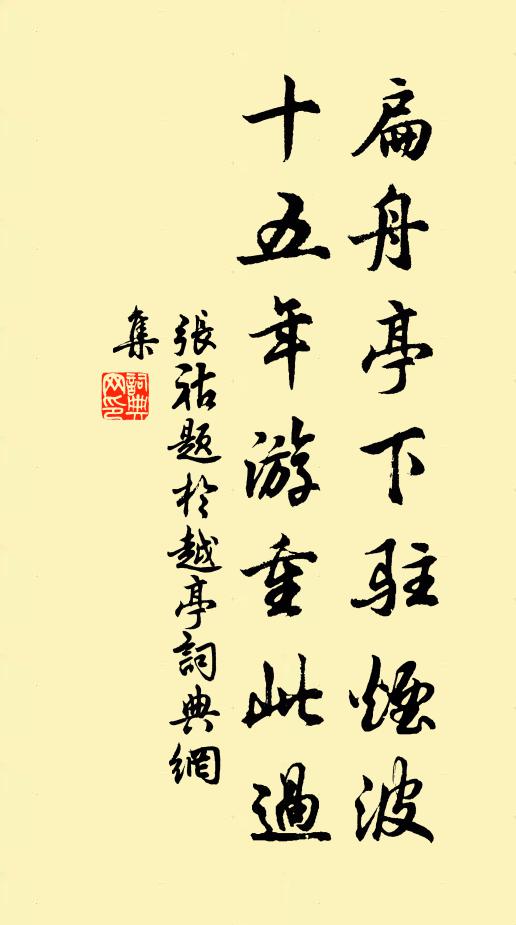 扁舟亭下駐煙波
十五年游重此過
張祜題於越亭詞典網
集
詞典
网印